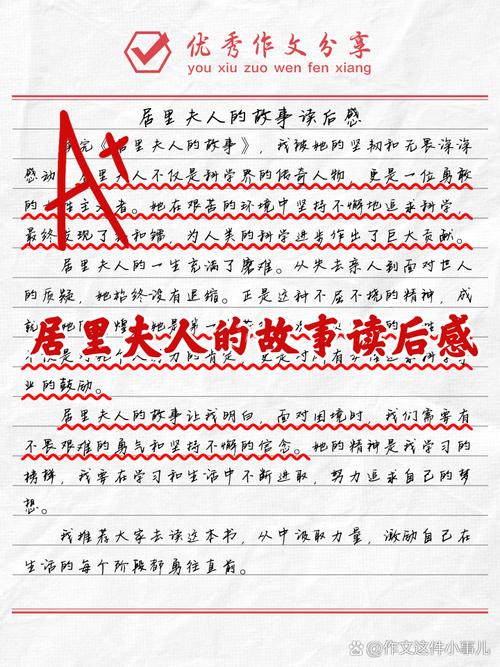 优秀作文分享
you xiu zuo wen fen xiang
A+
居里夫人的故事读后感
完《居里夫人的故事》，我被她的坚韧和无畏深深
感动 居里夫人不仅是科学界的传奇人物，更是一位勇敢
的 主义者。她在艰苦的环境中坚持不懈地追求科学，
最终发现了 和镭，为人类的科学进步作出了巨大贡献。
居里夫人的一生充满了磨难。从失去亲人到面对世人
的质疑，她始终没有退缩。正是这种不屈不挠的精神，成
就 她是第一
居里夫人的故事读后感
业的鼓励。
居里夫人的故事让我明白，面对困境时，我们需要有
不畏艰难的勇气和坚持不懈的信念。她的精神是我学习的
榜样，我要在学习和生活中不断进取，努力追求自己的梦
想。
我推荐大家去读这本书，从中汲取力量，激励自己在
生活的每个阶段都勇往直前。
@作文这件小事儿